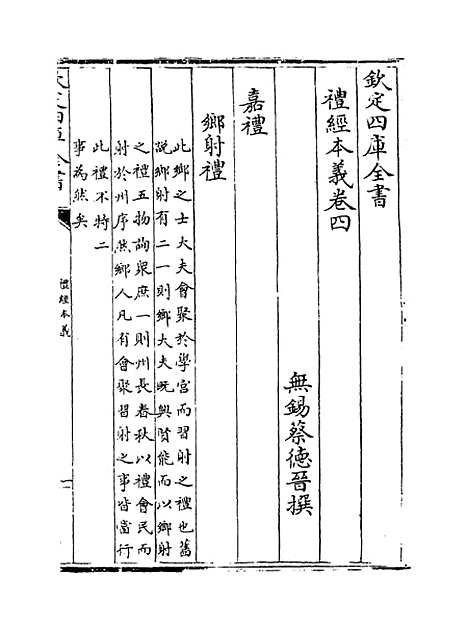 欽定四庫全書
禮經本義卷四
無錫蔡德晉撰
嘉禮
鄉射禮
此鄉之士大夫會聚於學宮而習射之禮也舊
說鄉射有二一則鄉大夫既興賢能而以鄉射
之禮五物詢衆庶一則州長春秋以禮會民而
射於州序然鄉人凡有會聚習射之事皆當行
此禮不特二
事為然矣
欽定四庫全書
禮經本義
一